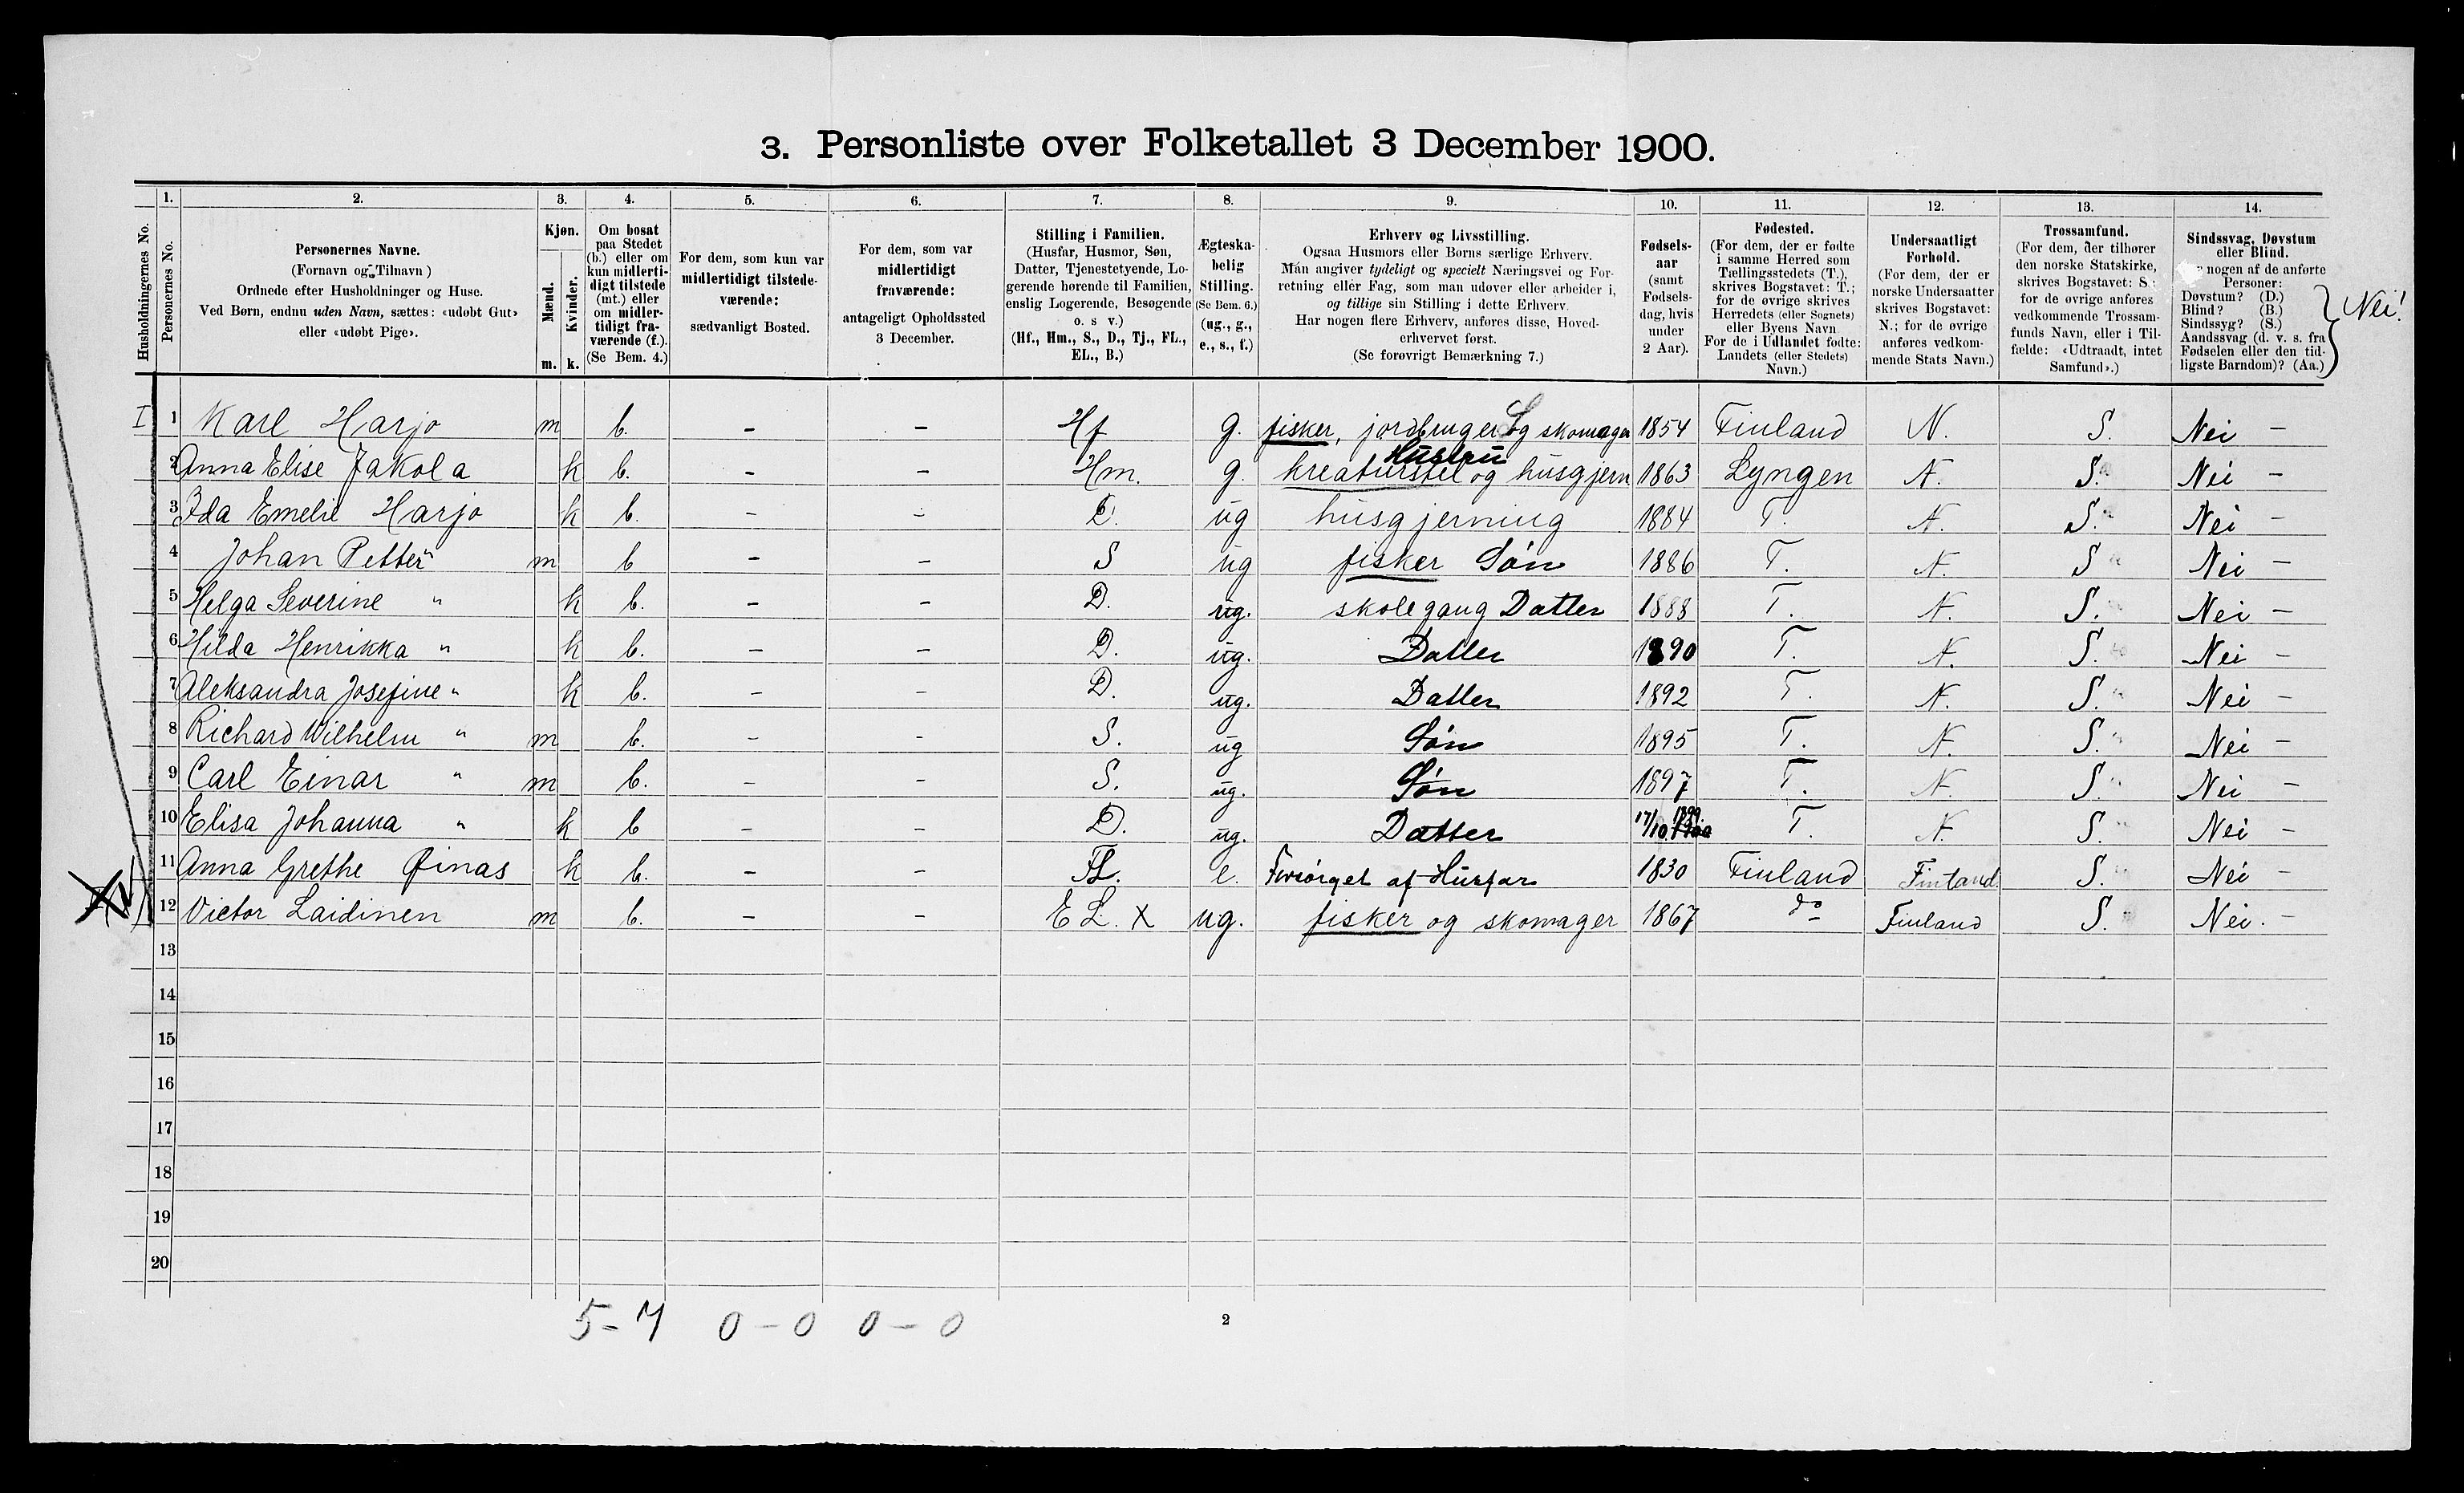 3. Personliste over Folketallet 3 December 1900.
Husholdningernes No.
1.
Personernes No.
2.
Personernes Navne.
(Fornavn og Tilnavn)
Ordnede efter Husholdninger og Huse.
Ved Børn, endnu uden Navn, sættes: «udøbt Gut»
eller «udøbt Pige».
3.
Kjøn.
Mænd.
Kvinder.
m. k.
4.
Om bosat
paa Stedet
(b.) eller om
kun midlerti-
digt tilstede
(mt.) eller
om midler-
tidigt fra-
værende (f.).
(Se Bem. 4.)
5.
For dem, som kun var
midlertidigt tilstede-
værende:
sædvanligt Bosted.
6.
For dem, som var
midlertidigt
fraværende:
antageligt Opholdssted
3 December.
7.
Stilling i Familien.
(Husfar, Husmor, Søn,
Datter, Tjenestetyende, Lo-
gerende hørende til Familien,
enslig Logerende, Besøgende
o. s v.)
(Hf., Hm., S., D., Tj., FL.,
EL., B.)
8.
Ægteska-
belig
Stilling.
(Se Bem. 6.)
(ug., g.,
e., s., f.)
9.
Erhverv og Livsstilling.
Ogsaa Husmors eller Børns særlige Erhverv.
Man angiver tydeligt og specielt Næringsvei og For-
retning eller Fag, som man udøver eller arbeider i,
og tillige sin Stilling i dette Erhverv.
Har nogen flere Erhverv, anføres disse, Hoved-
erhvervet først.
(Se forøvrigt Bemærkning 7.)
10.
Fødsels-
aar
(samt
Fødsels-
dag, hvis
under
2 Aar).
11.
Fødested.
(For dem, der er fødte
i samme Herred som
Tællingsstedets (T.),
skrives Bogstavet: T.;
for de øvrige skrives
Herredets (eller Sognets)
eller Byens Navn
For de i Udlandet fødte:
Landets (eller Stedets)
Navn.)
12.
Undersaatligt
Forhold.
(For dem, der er
norske Undersaatter
skrives Bogstavet:
N.; for de øvrige
anføres vedkom-
mende Stats Navn.)
13.
Trossamfund.
(For dem, der tilhører
den norske Statskirke,
skrives Bogstavet: S.;
for de øvrige anføres
vedkommende Trossam-
funds Navn, eller i Til-
fælde: «Udtraadt, intet
Samfund».)
14.
Sindssvag, Døvstum
eller Blind.
nogen af de anførte
Personer:
Døvstum? (D.)
Blind? (B.)
Sindssyg? (S.)
Aandssvag (d. v. s. fra
Fødselen eller den tid-
ligste Barndom)? (Aa.)
Nei!
I 1 Karl Harjo m b. - - Hf g. fisker, jordbruger og skomager 1854 Finland N. S. Nei -
Hustru
2 Anna Elise Jakola k b. - - Hm. g. kreaturstel og husgjern 1863 Lyngen N. S. Nei -
3 Ida Emelie Harjo k b. - - D. ug husgjerning 1884 T. N. S. Nei -
4 Johan Petter " m b - - S ug fisker Søn 1886 T. N. S Nei -
5 Helga Severine " k b. - - D. ug. skolegang Datter 1888 T. N. S. Nei -
6 Hilda Henrikka " k b. - - D. ug. Datter 1890 T. N. S. Nei -
7 Aleksandra Josefine " k b. - - D. ug. Datter 1892 T. N. S. Nei -
8 Richard Wilhelm " m b. - - S. ug Søn 1895 T. N. S. Nei -
9 Carl Einar " m b. - - S. ug. Søn 1897 T. N. S. Nei -
10 Elisa Johanna " k b - - D. ug. Datter 17/10 1899. T. N. S. Nei -
11 Anna Grethe Qinas k b. - - FL. e. Forsørget af Husfar 1830 Finland Finland. S. Nei -
12 Victor Laidinen m b. - - E L. X ug. fisker og skomager 1867 do Finland S. Nei. -
13
14
15
16
17
18
19
20
5 - 7 0 - 0 0 - 0
2